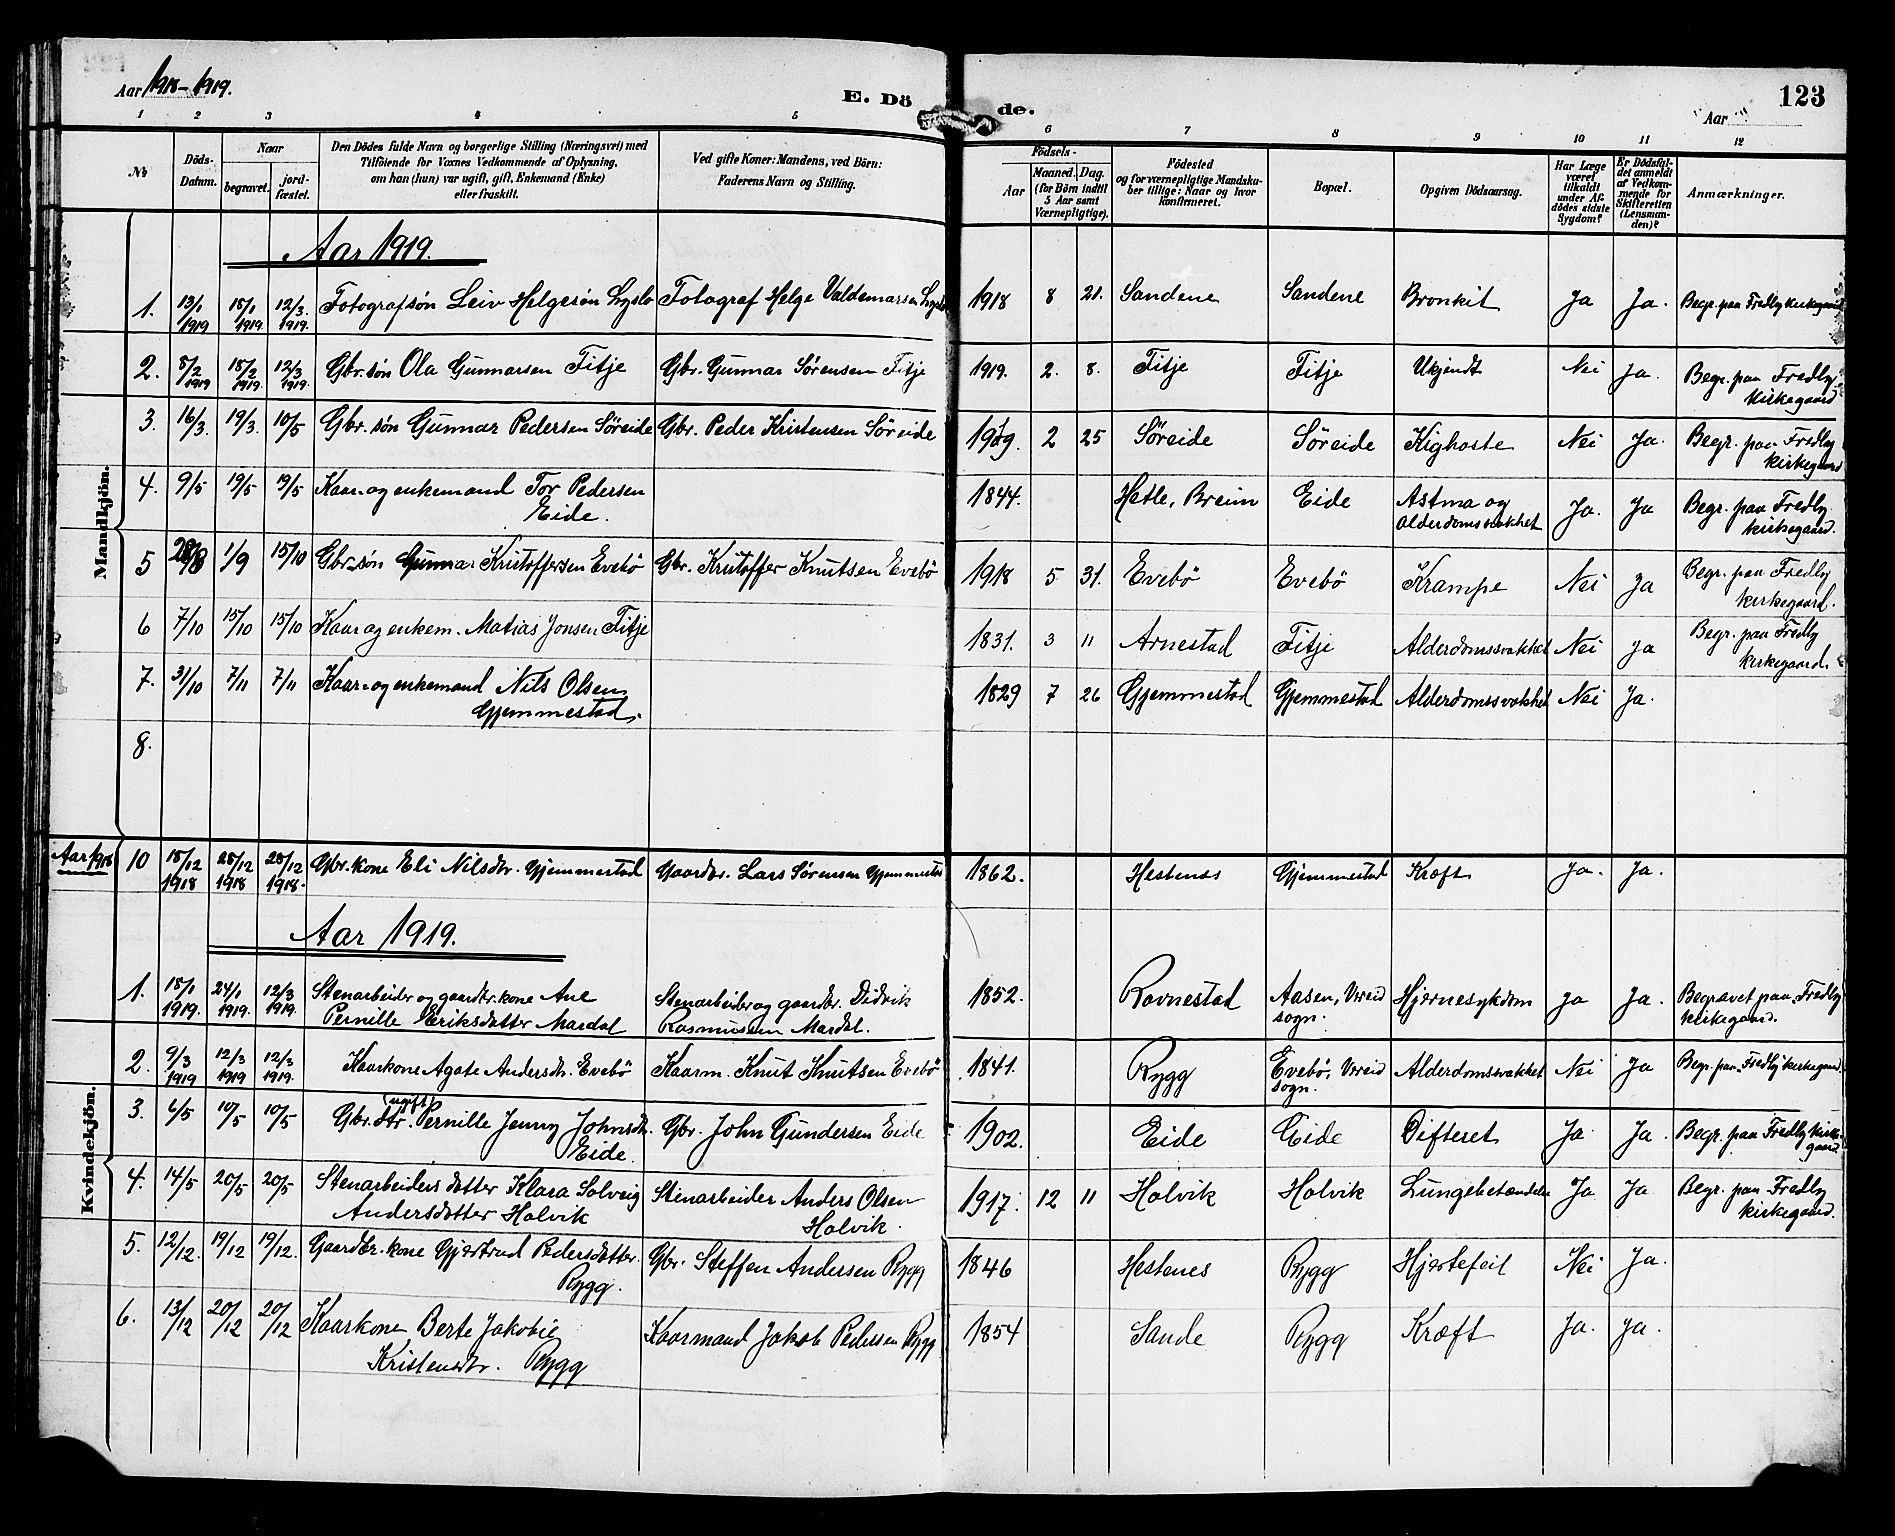 Aar 1918-1919.
E. Dö de.
123
Aar
1 2 3 4 5 6 7 8 9 10 11 12
No
Döds-Datum.
Naar
begravet. jordfæstet.
Den Dödes fulde Navn og borgerlige Stilling (Næringsvei) med
Tilföiende for Voxnes Vedkommende af Oplysning,
om han (hun) var ugift, gift, Enkemand (Enke)
eller fraskilt.
Ved gifte Koner: Mandens, ved Börn:
Faderens Navn og Stilling.
Födsels-
Aar
Maaned. Dag.
(for Börn indtil
5 Aar samt
Værnepligtige).
Födested
og for værnepligtige Mandska-
ber tillige: Naar og hvor
konfirmeret.
Bopæl.
Opgiven Dödsaarsag.
Har Læge
været
tilkaldt
under Af-
dödes sidste
Sygdom?
Er Dödsfal-
det anmeldt
af Vedkom-
mende for
Skifteretten
(Lensman-
den)?
Anmærkninger.
Mandkjön.
Aar 1919.
1. 13/1 1919 18/1 1919. 12/3 1919. Fotografsön Leiv Helgesön Lyslo Fotograf Helge Valdemarsen Lyslo 1918 8 21. Sandene Sandene Bronkit Ja Ja. Begr. paa Fredly kirkegaard
2. 8/2 1919 18/2 1919. 12/3 1919. Gbr. sön Ola Gunnarsen Fitje Gbr. Gunnar Sörensen Fitje 1919. 2. 8. Fitje Fitje Ukjendt Nei ja. Begr. paa Fredly
kirkegaard
3. 16/3. 19/3. 10/5 Gbr. sön Gunnar Pedersen Söreide Gbr. Peder Kristensen Söreide 1919. 2 25 Söreide Söreide Kighoste Nei Ja. Begr. paa Fredly
kirkegaard
4. 9/5 19/5 19/5 Kaar- og enkemand Tor Pedersen 1844. Hetle, Breim Eide Astma og Ja. Ja Begr. paa Fredly
Eide. Alderdomssvakhet kirkegaard.
5 28/8 1/9 15/10 Gbr-sön Gunnar Kristoffersen Evebö Gbr. Kristoffer Knutsen Evebö 1918 5 31. Evebö Evebö Krampe Nei Ja Begr. paa Fredly
kirkegaard.
6 7/10 15/10 15/10 Kaar og enkem. Matias Jonsen Fitje 1831. 3 11 Arnestad Fitje Alderdomssvakhet Nei ja Begr. paa Fredly
kirkegaard.
7. 31/10 7/11 7/11 Kaar- og enkemand Nils Olsen 1829 7 26 Gjemmestad Gjemmestad Alderdomssvakhet Nei Ja.
Gjemmestad.
8.
Aar 1918 10 18/12 1918 28/12 1918 28/12 1918. Gbr. kone Eli Nilsdtr. Gjemmestad Gaardbr. Lars Sörensen Gjemmestad 1862. Hestenes Gjemmestad Kræft Ja. Ja.
Kvindekjön.
Aar 1919.
1. 18/1 1919. 24/1 1919. 12/3 1919. Stenarbeider og gaardbr. kone Ane Stenarbeider og gaardbr. Didrik 1852. Ravnestad Aasen, Vereid Hjernesykdom ja Ja. Begravet paa Fredly
Pernille Eriksdatter Mardal Rasmussen Mardal. sogn. kirkegaard.
2. 9/3 1919 12/3 1919 12/3 1919. Kaarkone Agate Andersdtr. Evebö Kaarm. Knut Knutsen Evebö 1841. Rygg Evebö, Vereid Alderdomssvakhet Nei ja Begr. paa Fredly kirkegaard.
sogn.
3. 6/5 10/5 10/5 Gbr. dtr. (ugift) Pernille Jenny Johnsdtr. Gbr. John Gundersen Eide 1902. Eide Eide Difteret Ja Ja. Begr. paa Fredly kirke-
Eide. gaard
4. 14/5 20/5 20/5 Stenarbeiders datter Klara Solveig Stenarbeider Anders Olsen 1917. 12 11 Holvik Holvik Lungebetændelse Ja Ja Begr. paa Fredly
Andersdatter Holvik Holvik. kirkegaard.
5. 12/12. 19/12 19/12. Gaardbr. kone Gjertrud Pedersdatter Gbr. Steffen Andersen Rygg 1846 Hestenes Rygg Hjertefeil Nei Ja.
Rygg.
6. 13/12 20/12 20/12 Kaarkone Berte Jakobie Kaarmand Jakob Pedersen Rygg 1854 Sande Rygg Kræft Ja. ja.
Kristensdtr. Rygg